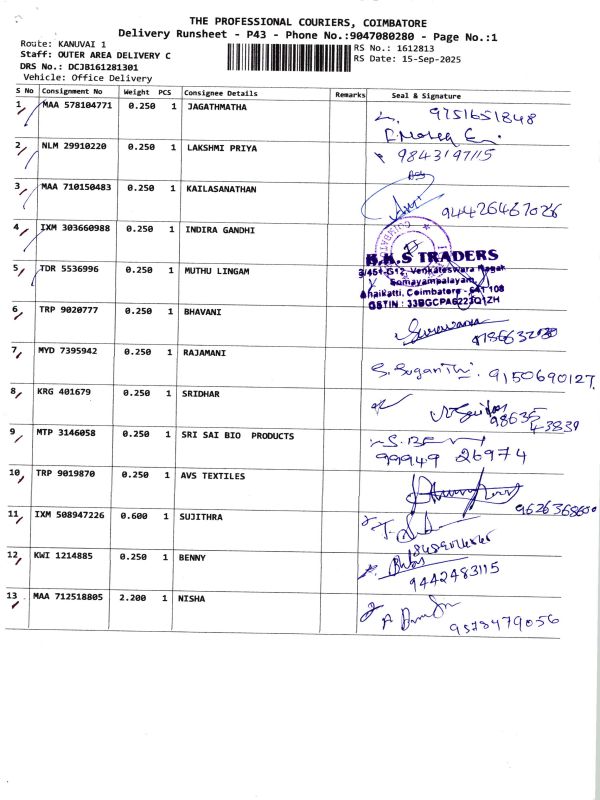 THE PROFESSIONAL COURIERS, COIMBATORE
Delivery Runsheet - P43 - Phone No.:9047080280 - Page No.:1
Route: KANUVAI 1
Staff: OUTER AREA DELIVERY C
DRS No.: DCJB161281301
Vehicle: Office Delivery
RS No.: 1612813
RS Date: 15-Sep-2025
S No Consignment No Weight PCS Consignee Details Remarks Seal & Signature
1 MAA 578104771 0.250 1 JAGATHMATHA 9751651848
2 NLM 29910220 0.250 1 LAKSHMI PRIYA 9843197115
3 MAA 710150483 0.250 1 KAILASANATHAN 94426467026
4 IXM 303660988 0.250 1 INDIRA GANDHI
K.K.S TRADERS
3/451-G12, Venkateswara Nagar
5 TDR 5536996 0.250 1 MUTHU LINGAM
Somayampalayam,
Anaikatti, Coimbatore - 641 108
GSTIN : 33BGCPA6223Q1ZH
6 TRP 9020777 0.250 1 BHAVANI
7 MYD 7395942 0.250 1 RAJAMANI S. Suganthi. 9150690127
8 KRG 401679 0.250 1 SRIDHAR 98635
43839
9 MTP 3146058 0.250 1 SRI SAI BIO PRODUCTS
99949 26974
10 TRP 9019870 0.250 1 AVS TEXTILES
9626368600
11 IXM 508947226 0.600 1 SUJITHRA
12 KWI 1214885 0.250 1 BENNY
9442483115
13 MAA 712518805 2.200 1 NISHA
9578479056